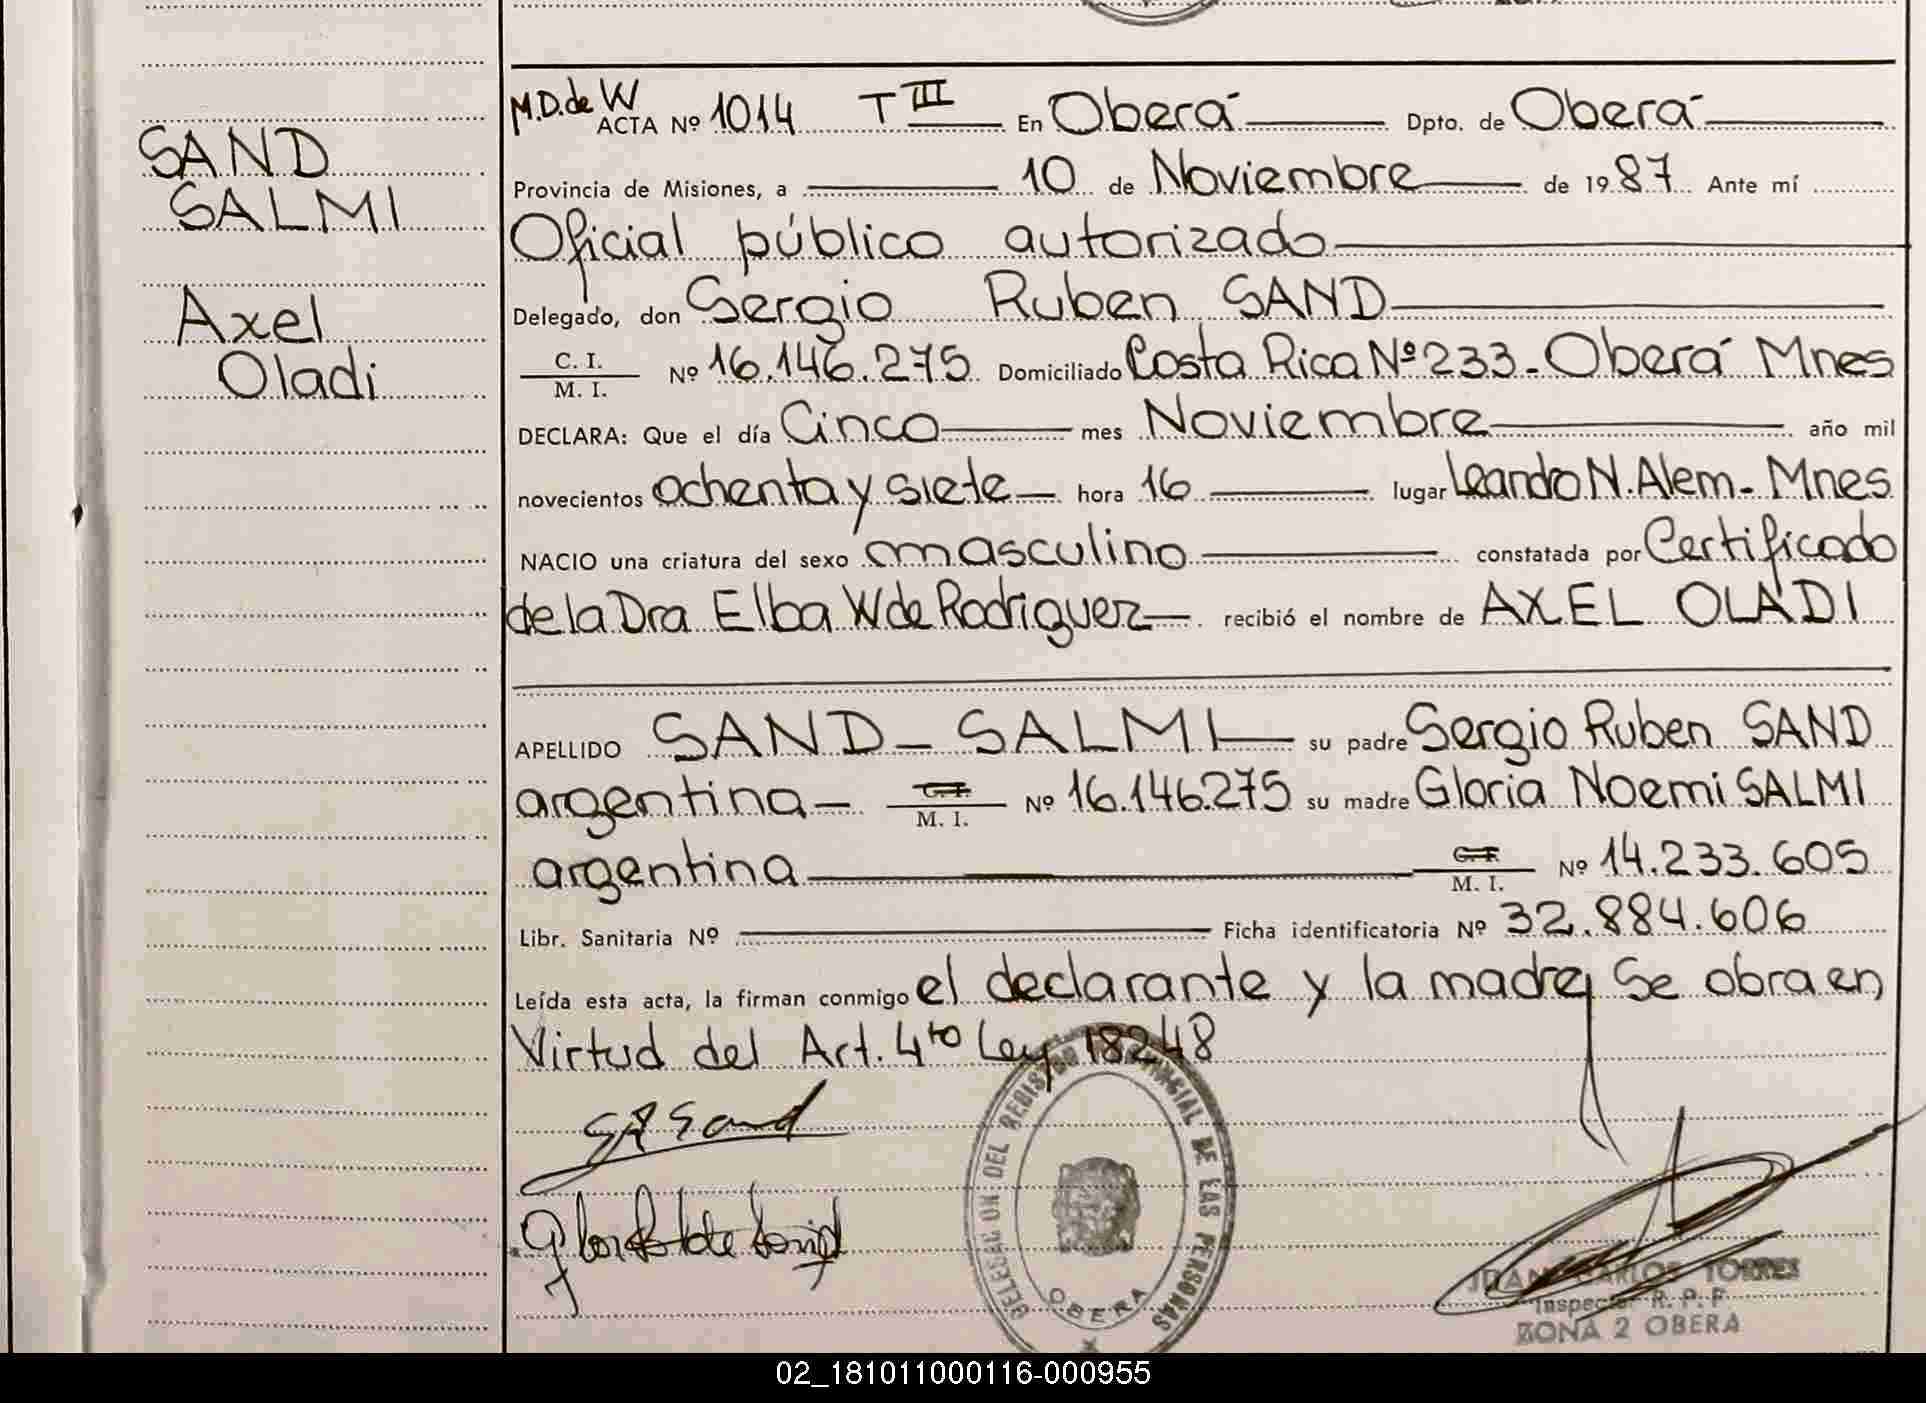 SAND
SALMI
Axel
Oladi
M.D.de W
ACTA Nº 1014 T III En Oberá Dpto. de Oberá
Provincia de Misiones, a 10 de Noviembre de 1987 Ante mí
Oficial público autorizado
Delegado, don Sergio Ruben SAND
C. I.
M. I. Nº 16.146.275 Domiciliado Costa Rica Nº 233-Oberá Mnes
DECLARA: Que el día Cinco mes Noviembre año mil
novecientos ochenta y siete hora 16 lugar Leandro N. Alem- Mnes
NACIO una criatura del sexo masculino constatada por Certificado
de la Dra Elba W de Rodriguez recibió el nombre de AXEL OLADI
APELLIDO SAND-SALMI su padre Sergio Ruben SAND
argentina C. I. M. I. Nº 16.146.275 su madre Gloria Noemi SALMI
argentina C. I. M. I. Nº 14.233.605
Libr. Sanitaria Nº Ficha identificatoria Nº 32.884.606
Leída esta acta, la firman conmigo el declarante y la madre, Se obra en
Virtud del Art. 4to Ley 18248
S R Sand
DELEGACION DEL REGISTRO PROVINCIAL DE LAS PERSONAS
OBERA
JUAN CARLOS TORRES
Inspector R. P. P.
ZONA 2 OBERA
02_181011000116-000955